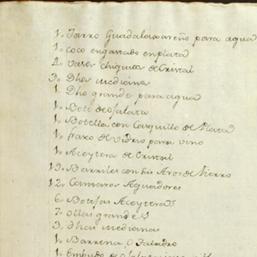 1. Jarro Guadalaxareño para agua
1. coco engarzado en plata
2. Vasos chiquitos de Cristal
3. Dhos medianos
1. Dho grande para agua
1. Bote de ojalata
1. Botella con Casquillo de Plata
1. frasco de vidrio para vino
1. Aceytera de Cristal
13. Barriles con sus Aros de fierro
12. Cantaros Aguadores
6. Botijas Aceyteras
7. Ollas grandes
3. Dhas medianas
1. Barrena o Taladro
1. Embudo